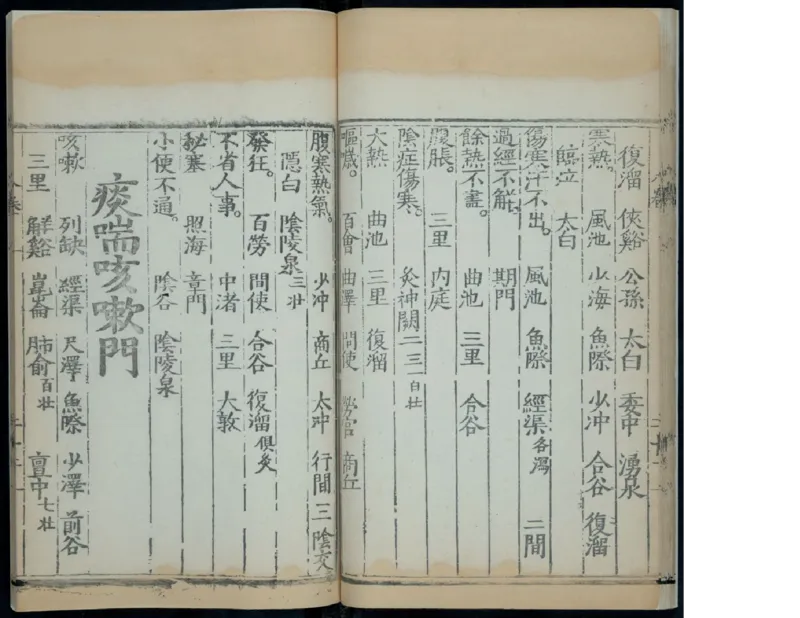 復溜 俠谿 公孫 太白 委中 湧泉
寒熱。 風池 少海 魚際 少冲 合谷 復溜
臨泣 太白
傷寒汗不出。 風池 魚際 經渠各瀉 二間
過經不解。 期門
餘熱不盡。 曲池 三里 合谷
腹脹。 三里 內庭
陰症傷寒。 灸神闕二三百壯
大熱 曲池 三里 復溜
嘔噦。 百會 曲澤 間使 勞宮 商丘
腹寒熱氣。 少冲 商丘 太冲 行間 三陰交
隱白 陰陵泉三壯
發狂。 百勞 間使 合谷 復溜俱灸
不省人事。 中渚 三里 大敦
秘塞 照海 章門
小便不通。 陰谷 陰陵泉
痰喘咳嗽門
咳嗽 列缺 經渠 尺澤 魚際 少澤 前谷
三里 解谿 崑崙 肺俞百壯 亶中七壯